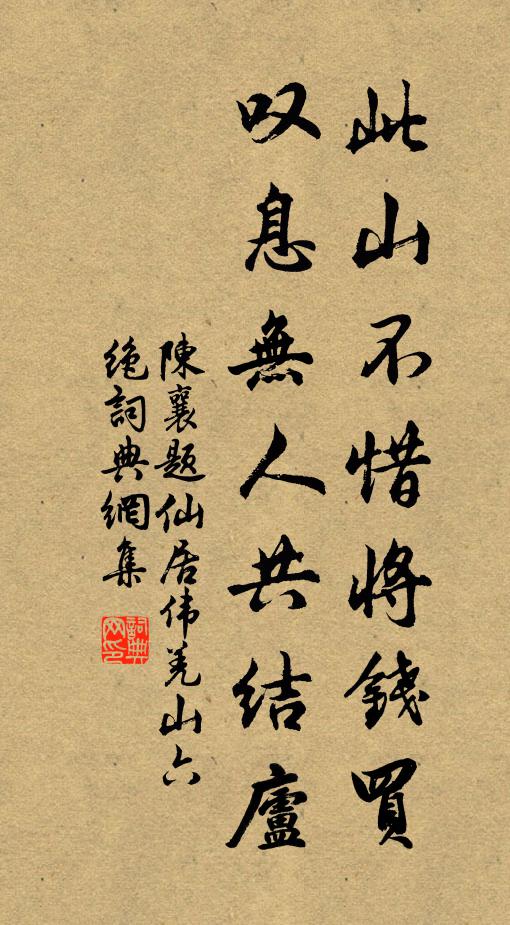 此山不惜將錢買
叹息無人共結廬
陳襄題仙居伟羌山六
絶詞典網集
詞典网印